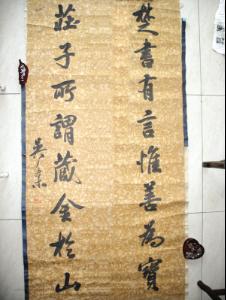 楚書有言惟善為寶
莊子所謂藏金於山